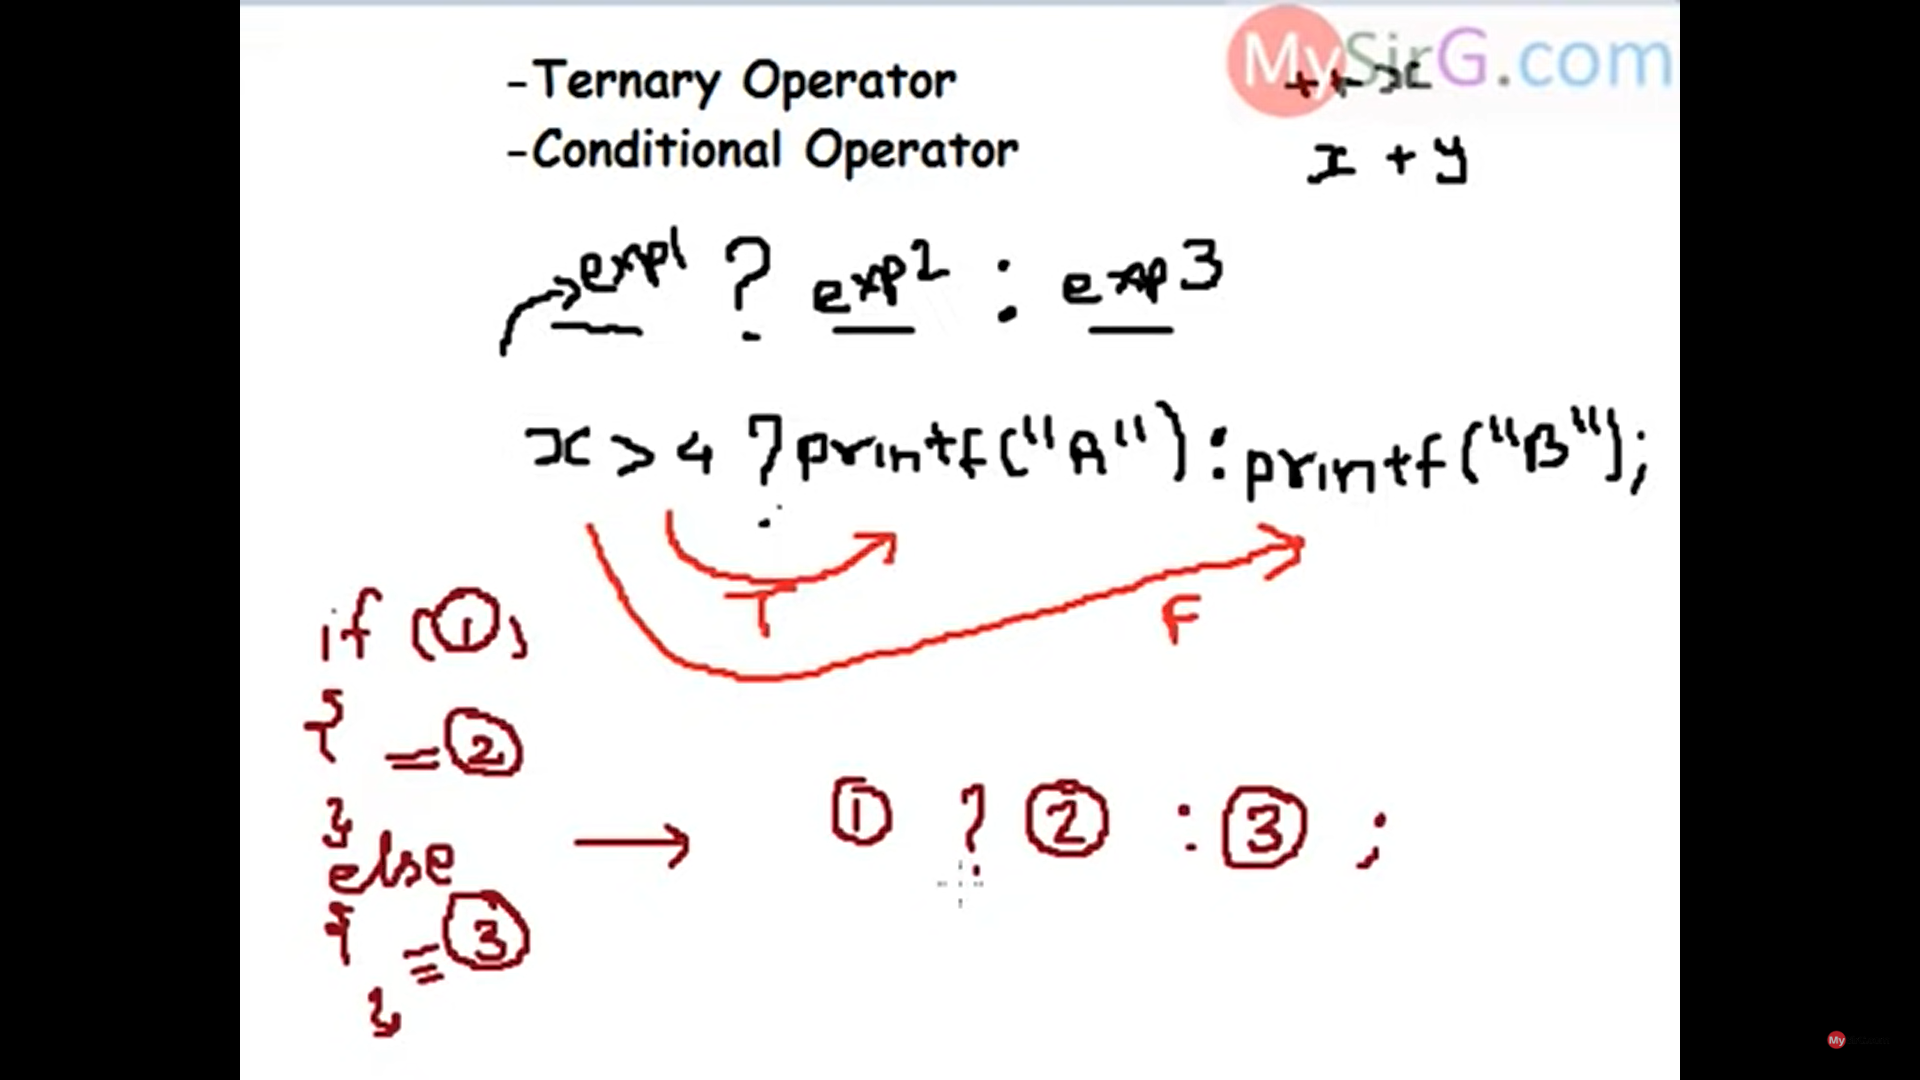 MySirG.com
-Ternary Operator
++x
-Conditional Operator
x + y
exp1 ? exp2 : exp3
x > 4 ? printf("A") : printf("B");
T
F
if (1)
{
= 2
}
else
{
= 3
}
→ 1 ? 2 : 3 ;
My